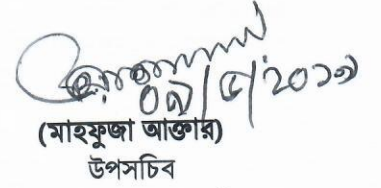 ০৯/৫/২০১৯
(মাহফুজা আক্তার)
উপসচিব